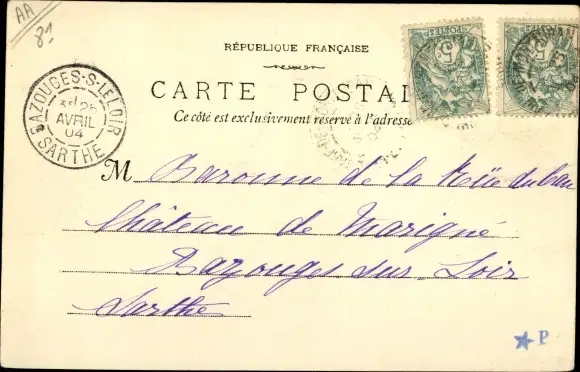 AA
81
RÉPUBLIQUE FRANÇAISE
CARTE POSTAL
Ce côté est exclusivement réservé à l'adresse
BAZOUGES-S-LE LOIR
25
AVRIL
04
SARTHE
M Baronne de la
Château de Marigné
Bazouges sur Loir
Sarthe
P